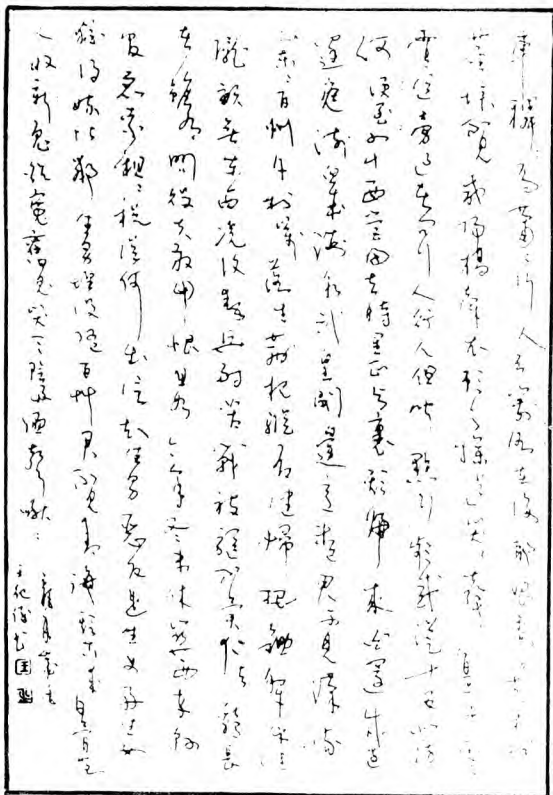 車轔轔馬蕭蕭行人弓箭各在腰耶娘妻子走相送
塵埃不見咸陽橋牽衣頓足攔道哭哭聲直上干雲
霄道旁過者問行人行人但云點行頻或從十五北防
河便至四十西營田去時里正與裹頭歸來頭白還戍邊
邊庭流血成海水武皇開邊意未已君不見漢家
山東二百州千村萬落生荊杞縱有健婦把鋤犁禾生
隴畝無東西況復秦兵耐苦戰被驅不異犬與雞長
者雖有問役夫敢申恨且如今年冬未休關西卒縣
官急索租租稅從何出信知生男惡反是生女好生女
猶得嫁比鄰生男埋沒隨百草君不見青海頭古來白骨無
人收新鬼煩冤舊鬼哭天陰雨濕聲啾啾